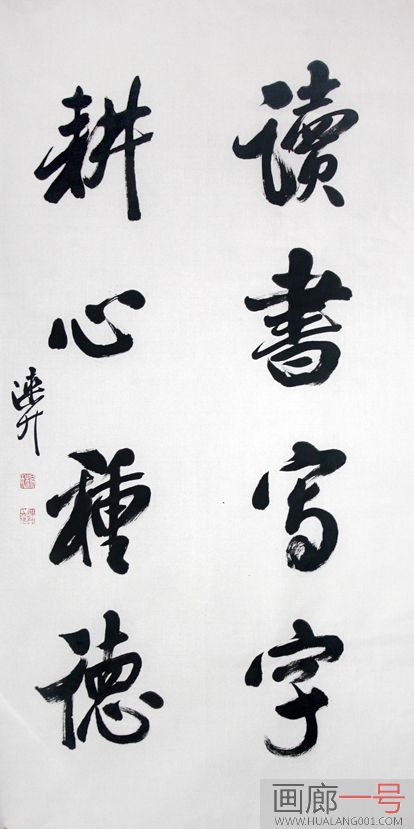 讀書写字
耕心種德
連升
画廊一号
WWW.HUALANG001.COM